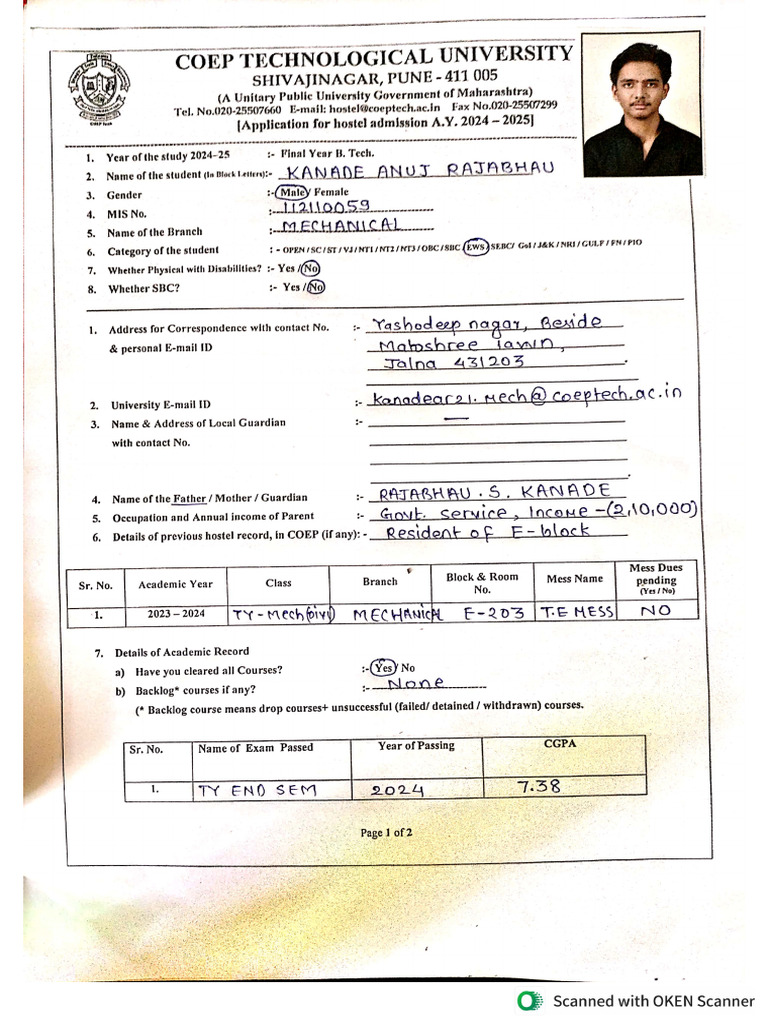 COEP TECHNOLOGICAL UNIVERSITY
SHIVAJINAGAR, PUNE - 411 005
(A Unitary Public University Government of Maharashtra)
Tel. No.020-25507660 E-mail: hostel@coeptech.ac.in Fax No.020-25507299
[Application for hostel admission A.Y. 2024 – 2025]
COEP Tech
1. Year of the study 2024-25 :- Final Year B. Tech.
2. Name of the student (In Block Letters):- KANADE ANUJ RAJABHAU
3. Gender :- Male/ Female
4. MIS No. :- 112110059
5. Name of the Branch :- MECHANICAL
6. Category of the student : - OPEN / SC / ST / VJ / NT1 / NT2 / NT3 / OBC / SBC / EWS/ SEBC/ GoI / J&K / NRI / GULF / FN / PIO
7. Whether Physical with Disabilities? :- Yes / No
8. Whether SBC? :- Yes / No
1. Address for Correspondence with contact No. :- Yashodeep nagar, Beside
& personal E-mail ID Matoshree lawn,
Jalna 431203
2. University E-mail ID :- kanadear21.mech@coeptech.ac.in
3. Name & Address of Local Guardian :- —
with contact No.
4. Name of the Father / Mother / Guardian :- RAJABHAU . S. KANADE
5. Occupation and Annual income of Parent :- Govt. service, Income -(2,10,000)
6. Details of previous hostel record, in COEP (if any): - Resident of E-block
Sr. No. Academic Year Class Branch Block & Room No. Mess Name Mess Dues pending (Yes / No)
1. 2023 – 2024 TY-Mech(Div1) MECHANICAL E-203 T.E MESS NO
7. Details of Academic Record
a) Have you cleared all Courses? :- Yes/ No
b) Backlog* courses if any? :- None
(* Backlog course means drop courses+ unsuccessful (failed/ detained / withdrawn) courses.
Sr. No. Name of Exam Passed Year of Passing CGPA
1. TY END SEM 2024 7.38
Page 1 of 2
Scanned with OKEN Scanner